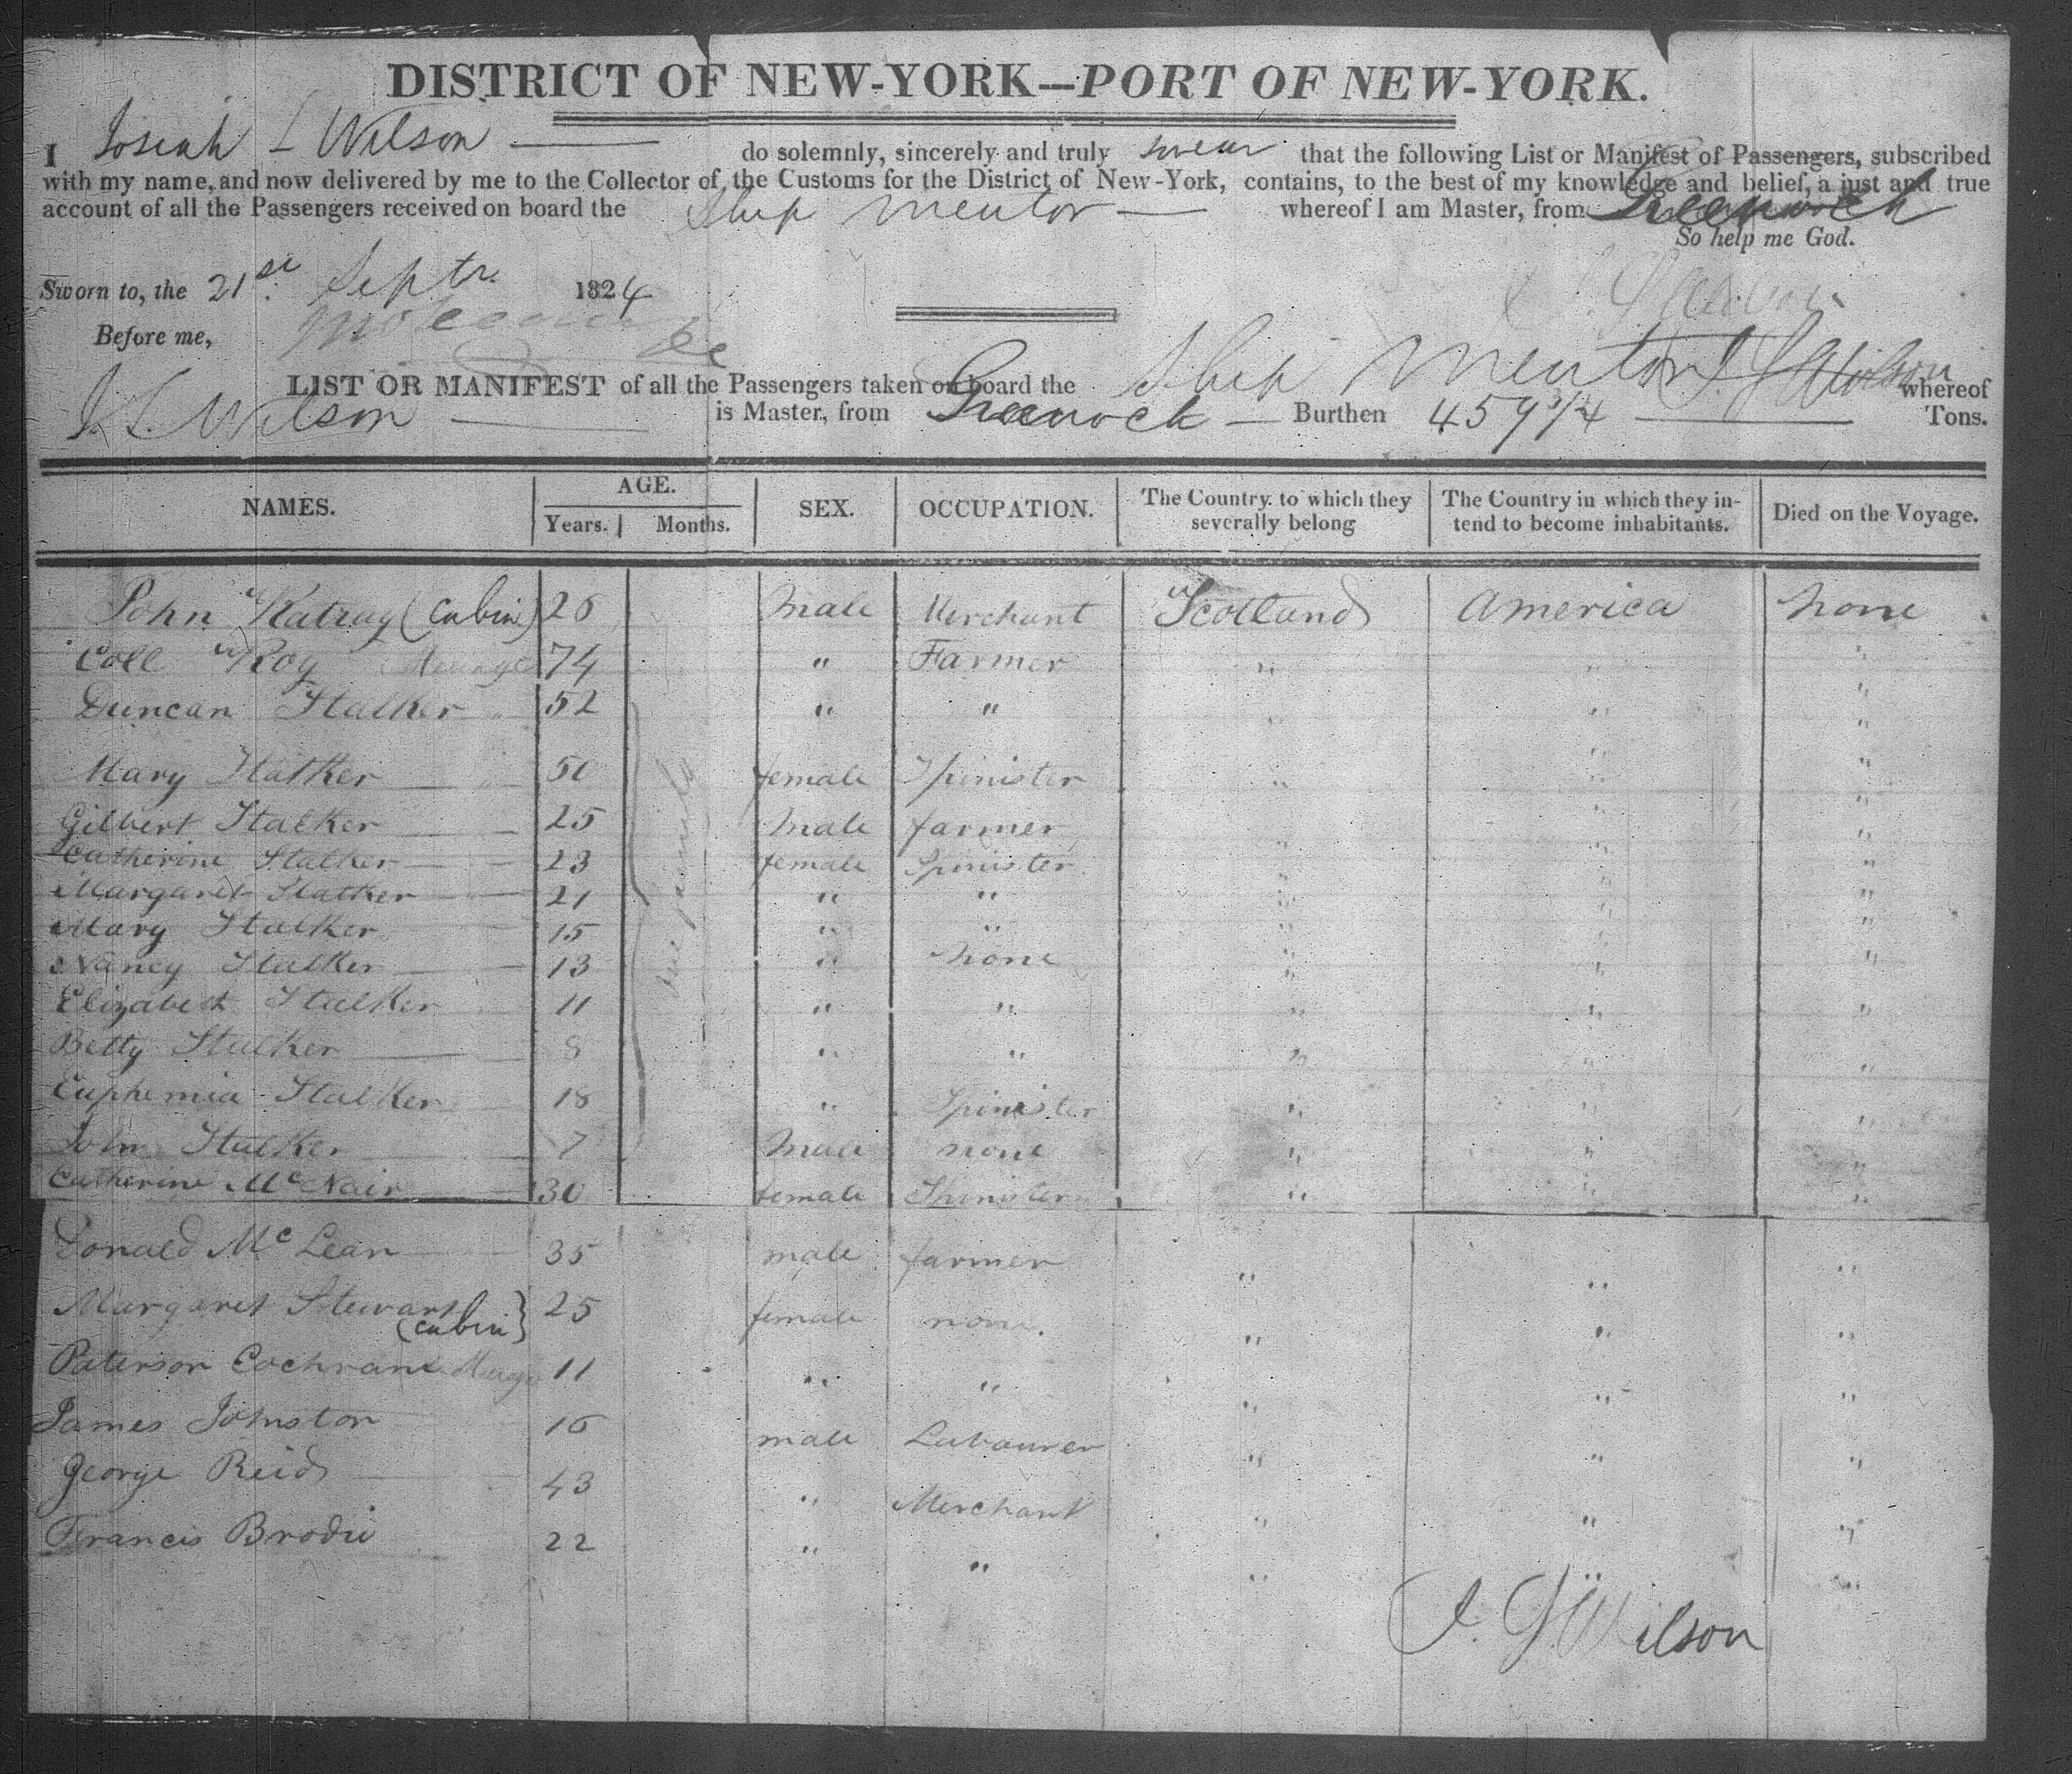 DISTRICT OF NEW-YORK—PORT OF NEW-YORK.
I Josiah L Wilson do solemnly, sincerely and truly swear that the following List or Manifest of Passengers, subscribed
with my name, and now delivered by me to the Collector of the Customs for the District of New-York, contains, to the best of my knowledge and belief, a just and true
account of all the Passengers received on board the Ship Mentor whereof I am Master, from Greenock
So help me God.
Sworn to, the 21st Septr. 1824
Before me,
LIST OR MANIFEST of all the Passengers taken on board the Ship Mentor whereof
J. L. Wilson is Master, from Greenock Burthen 459 3/4 Tons.
NAMES. AGE. SEX. OCCUPATION. The Country to which they severally belong The Country in which they intend to become inhabitants. Died on the Voyage.
Years. Months.
John (Cabin) 26 Male Merchant Scotland America none
Coll McRoy 74 " Farmer " " "
Duncan Stalker 52 " " " " "
Mary Stalker 50 female Spinister " " "
Gilbert Stalker 25 Male farmer " " "
Catherine Stalker 23 female Spinister " " "
Margaret Stalker 21 " " " " "
Mary Stalker 15 " " " " "
Nancy Stalker 13 " none " " "
Elizabeth Stalker 11 " " " " "
Betty Stalker 8 " " " " "
Euphemia Stalker 18 " Spinister " " "
John Stalker 7 Male none " " "
Catherine McNair 30 female Spinister " " "
one family
Donald McLean 35 male farmer " " "
Margaret Stewart (Cabin) 25 female none. " " "
Paterson Cochrane 11 " " " " "
James Johnston 16 male Labourer " " "
George Reid 43 " Merchant " " "
Francis Brodie 22 " " " " "
Wilson